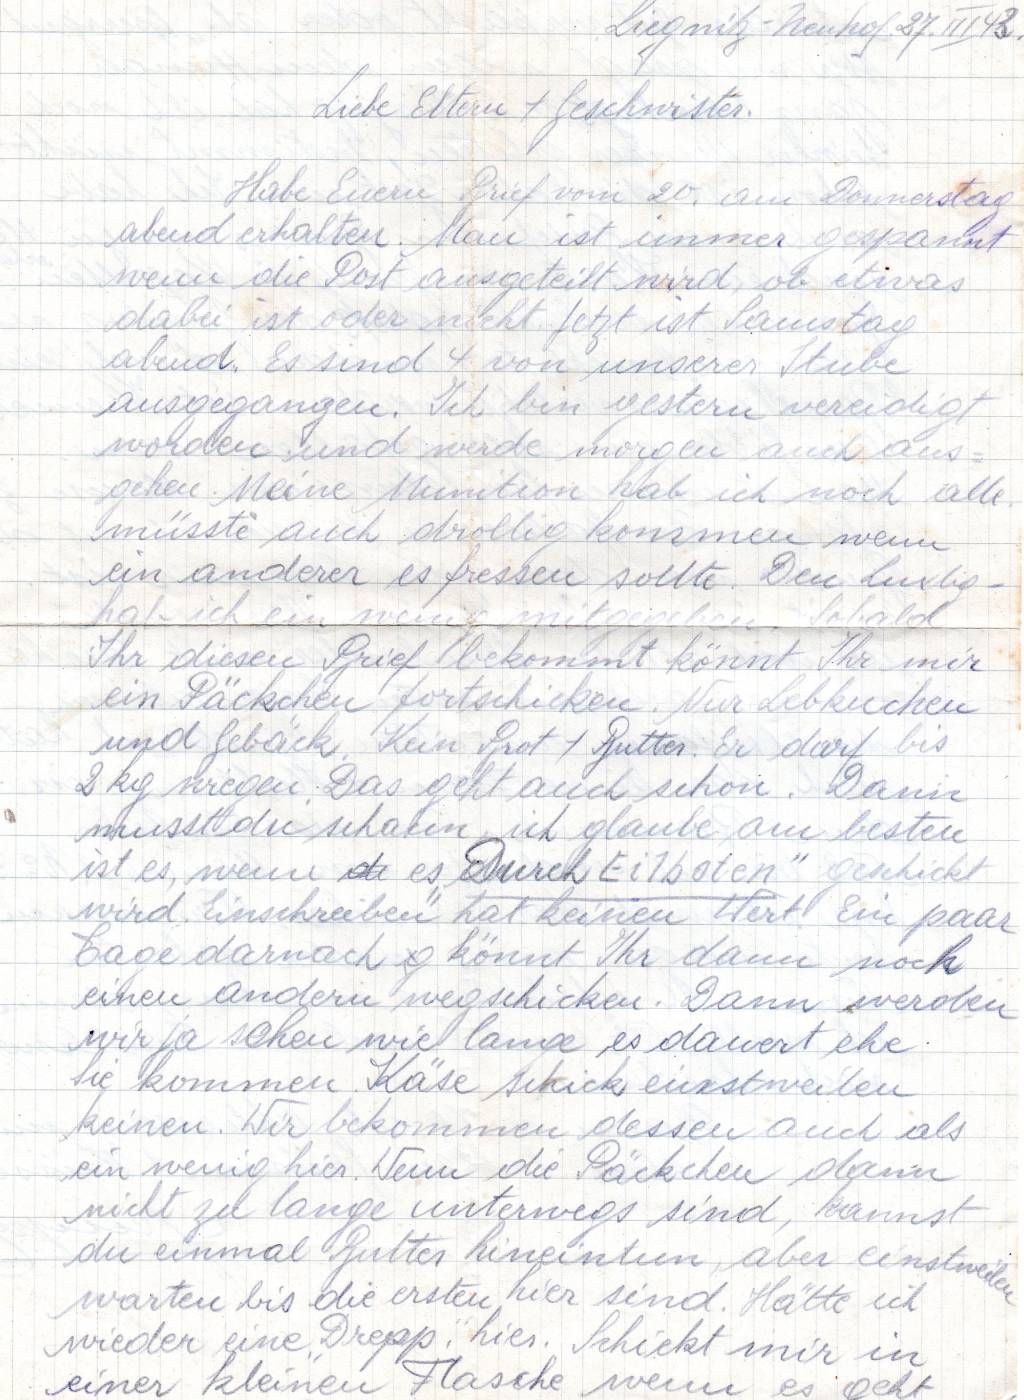 Liegnitz-Neuhof 27.III 43.
Liebe Eltern + Geschwister.
Habe Euern Brief vom 20. am Donnerstag
abend erhalten. Man ist immer gespannt
wenn die Post ausgeteilt wird, ob etwas
dabei ist oder nicht. Jetzt ist Samstag
abend. Es sind 4 von unserer Stube
ausgegangen. Ich bin gestern vereidigt
worden und werde morgen auch aus=
gehen. Meine Munition hab ich noch alle.
müsste auch drollig kommen wenn
ein anderer es fressen sollte. Den
hab ich ein wenig mitgegeben. Sobald
Ihr diesen Brief bekommt könnt Ihr mir
ein Päckchen fortschicken. Nur Lebkuchen
und Gebäck. Kein Brot + Butter. Er darf bis
2 kg wiegen. Das geht auch schon. Dann
musst du schauen, ich glaube am besten
ist es, wenn es „Durch Eilboten" geschickt
wird. Einschreiben" hat keinen Wert. Ein paar
Tage darnach könnt Ihr dann noch
einen andern wegschicken. Dann werden
wir ja sehen wie lange es dauert ehe
sie kommen. Käse schick einstweilen
keinen. Wir bekommen dessen auch als
ein wenig hier. Wenn die Päckchen dann
nicht zu lange unterwegs sind, kannst
du einmal Butter hineintun, aber einstweilen
warten bis die ersten hier sind. Hätte ich
wieder eine „Drepp" hier. Schickt mir in
einer kleinen Flasche wenn es geht